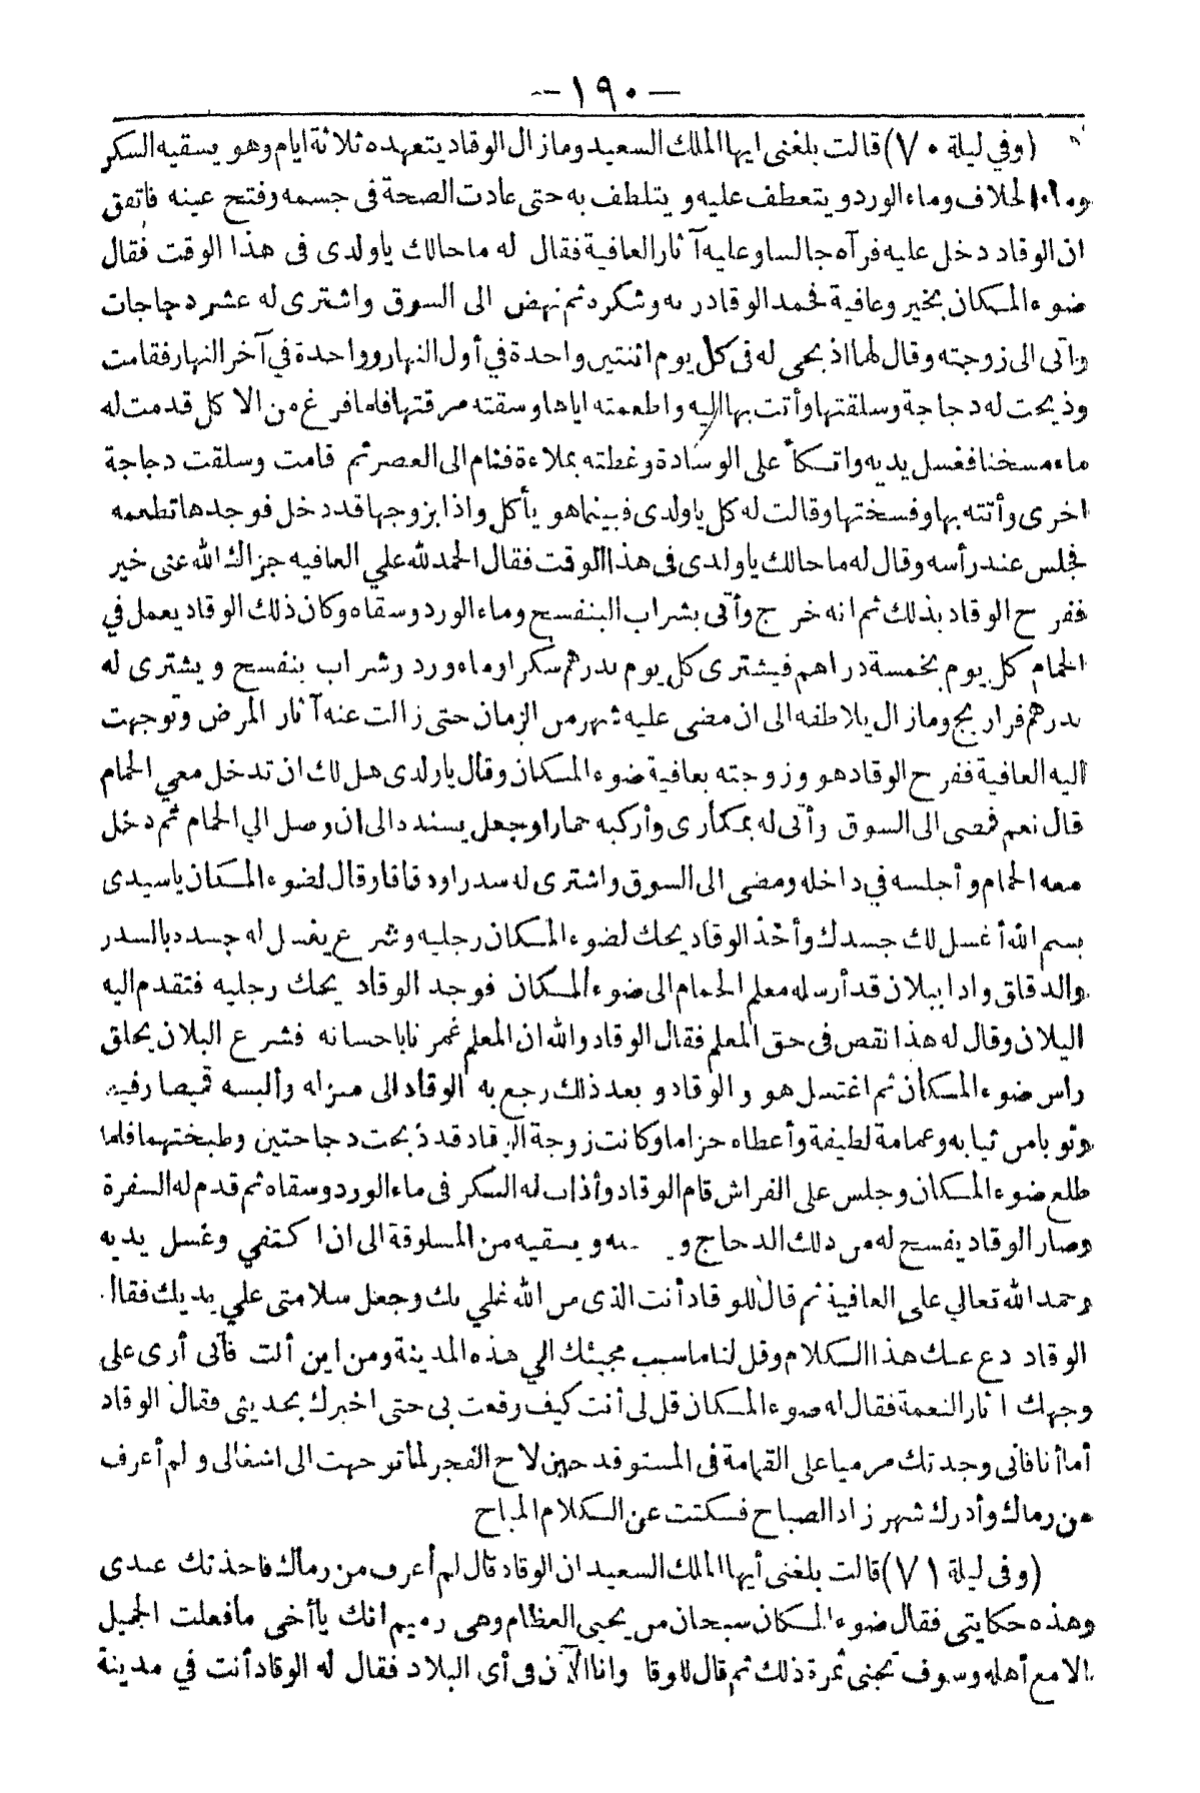 —١٩٠—
(وفي ليلة ٧٠) قالت بلغنى ايها الملك السعيد ومازال الوقاد يتعهده ثلاثة ايام وهو يسقيه السكر
وماء الخلاف وماء الورد ويتعطف عليه ويتلطف به حتى عادت الصحة فى جسمه وفتح عينه فاتفق
ان الوقاد دخل عليه فرآه جالسا وعليه آثار العافية فقال له ما حالك ياولدى فى هذا الوقت فقال
ضوء المكان بخير وعافية فحمد الوقاد ربه وشكره ثم نهض الى السوق واشترى له عشر دجاجات
واتى الى زوجته وقال لها اذبحى له فى كل يوم اثنتين واحدة في أول النهار وواحدة في آخر النهار فقامت
وذبحت له دجاجة وسلقتها وأتت بها اليه واطعمته اياها وسقته مرقتها فلما فرغ من الاكل قدمت له
ماء مسخنا فغسل يديه واتكأ على الوسادة وغطته بملاءة فنام الى العصر ثم قامت وسلقت دجاجة
اخرى وأتته بها وفسختها وقالت له كل ياولدى فبينما هو يأكل واذا بزوجها قد دخل فوجدها تطعمه
فجلس عند رأسه وقال له ما حالك ياولدى فى هذا الوقت فقال الحمد لله علي العافيه جزاك الله عنى خير
ففرح الوقاد بذلك ثم انه خرج وأتى بشراب البنفسج وماء الورد وسقاه وكان ذلك الوقاد يعمل في
الحمام كل يوم بخمسة دراهم فيشترى كل يوم بدرهم سكرا وماء ورد وشراب بنفسج ويشترى له
بدرهم فراريج ومازال يلاطفه الى ان مضى عليه شهر من الزمان حتى زالت عنه آثار المرض وتوجهت
اليه العافية ففرح الوقاد هو وزوجته بعافية ضوء المكان وقال ياولدى هل لك ان تدخل معي الحمام
قال نعم فمضى الى السوق وأتى له بمكارى وأركبه حمارا وجعل يسنده الى ان وصل الي الحمام ثم دخل
معه الحمام وأجلسه في داخله ومضى الى السوق واشترى له سدرا ودقاقا وقال لضوء المكان ياسيدى
بسم الله أغسل لك جسدك وأخذ الوقاد يحك لضوء المكان رجليه وشرع يغسل له جسده بالسدر
والدقاق واذا ببلان قد أرسله معلم الحمام الى ضوء المكان فوجد الوقاد يحك رجليه فتقدم اليه
البلان وقال له هذا نقص فى حق المعلم فقال الوقاد والله ان المعلم غمرنا باحسانه فشرع البلان يحلق
راس ضوء المكان ثم اغتسل هو والوقاد وبعد ذلك رجع به الوقاد الى منزله وألبسه قميصا رفيعا
وثوبا من ثيابه وعمامة لطيفة وأعطاه حزاما وكانت زوجة الوقاد قد ذبحت دجاجتين وطبختهما فلما
طلع ضوء المكان وجلس على الفراش قام الوقاد وأذاب له السكر فى ماء الورد وسقاه ثم قدم له السفرة
وصار الوقاد يفسخ له من ذلك الدجاج ويسقيه من المسلوقة الى ان اكتفي وغسل يديه
وحمد الله تعالي على العافية ثم قال للوقاد أنت الذى من الله علي بك وجعل سلامتى علي يديك فقال
الوقاد دع عنك هذا الكلام وقل لنا ما سبب مجيئك الي هذه المدينة ومن اين ألت فانى أرى على
وجهك اثار النعمة فقال له ضوء المكان قل لى أنت كيف وقعت بى حتى اخبرك بحديثى فقال الوقاد
أما أنا فانى وجدتك مرميا على القمامة فى المستوقد حين لاح الفجر لما توجهت الى اشغالى ولم أعرف
من رماك وأدرك شهرزاد الصباح فسكتت عن الكلام المباح
(وفى ليلة ٧١) قالت بلغنى أيها الملك السعيد ان الوقاد قال لم أعرف من رماك فاخذتك عندى
وهذه حكايتى فقال ضوء المكان سبحان من يحيى العظام وهى رميم انك ياأخى ما فعلت الجميل
الا مع أهله وسوف تجنى ثمرة ذلك ثم قال للوقاد وانا الآن فى أى البلاد فقال له الوقاد أنت في مدينة